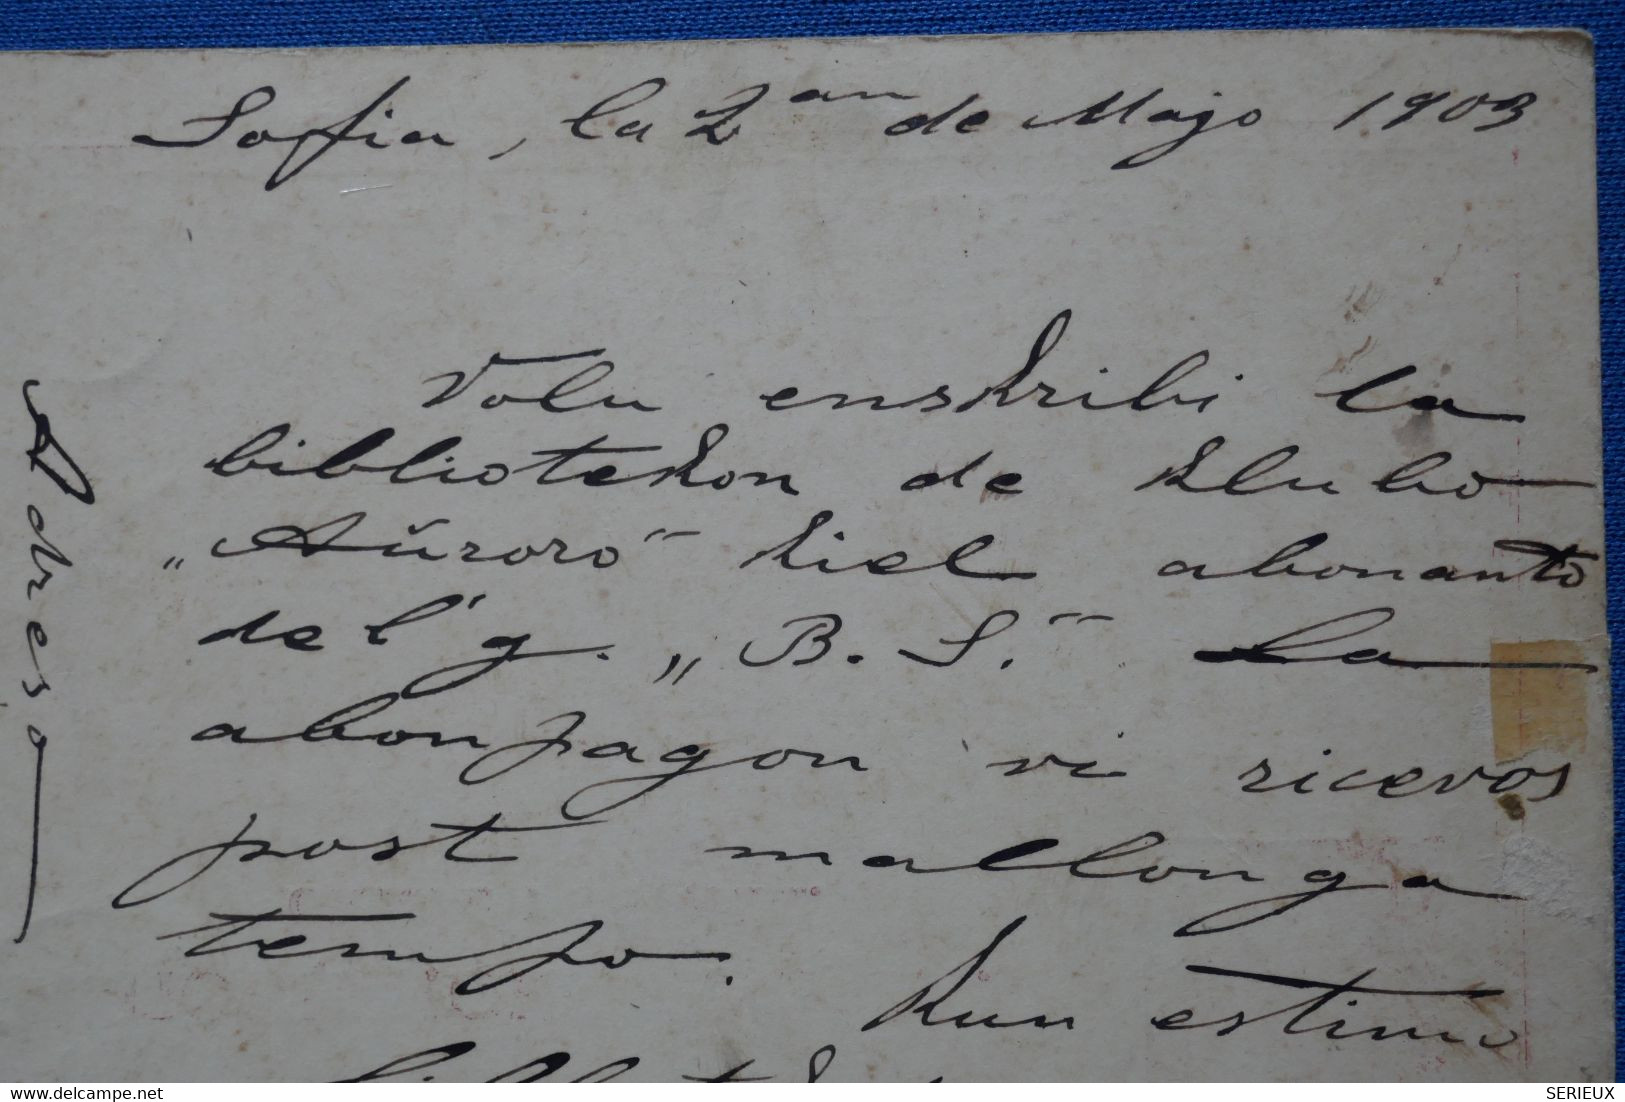 Sofia, la 2an de Majo 1903
Volu enskribi la
bibliotekon de klubo
„Aŭroro“ kiel abonanto
de l' g. „B. S.“ La
abonpagon vi ricevos
post mallonga
tempo.
Kun estimo
Adreso
SERIEUX
delcampe.net